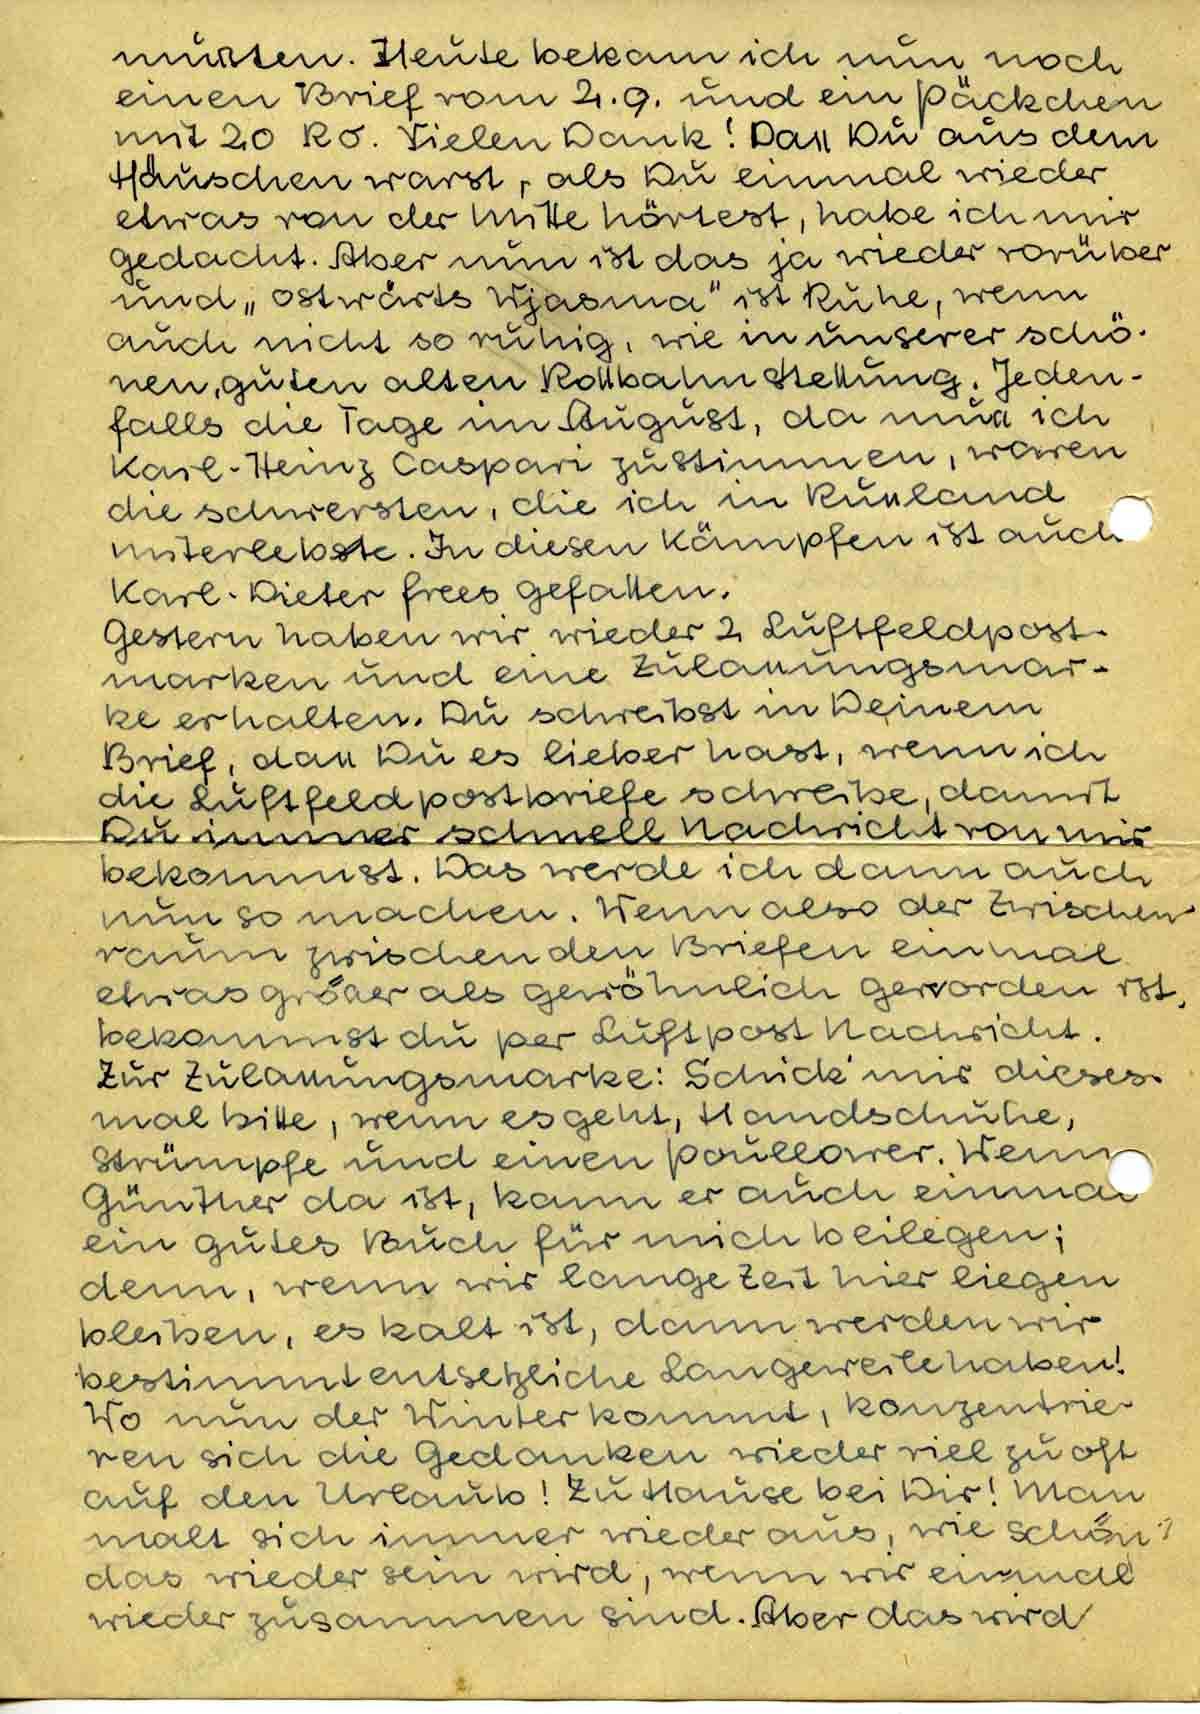 mußten. Heute bekam ich nun noch
einen Brief vom 2.9. und ein Päckchen
mit 20 Ro. Vielen Dank! Daß Du aus dem
Häuschen warst, als Du einmal wieder
etwas von der Mitte hörtest, habe ich mir
gedacht. Aber nun ist das ja wieder vorüber
und „ostwärts Wjasma" ist Ruhe, wenn
auch nicht so ruhig, wie in unserer schö-
nen, guten alten Rollbahnstellung. Jeden-
falls die Tage im August, da muß ich
Karl-Heinz Caspari zustimmen, waren
die schwersten, die ich in Rußland
miterlebte. In diesen Kämpfen ist auch
Karl-Dieter Frees gefallen.
Gestern haben wir wieder 2 Luftfeldpost-
marken und eine Zulassungsmar-
ke erhalten. Du schreibst in Deinem
Brief, daß Du es lieber hast, wenn ich
die Luftfeldpostbriefe schreibe, damit
Du immer schnell Nachricht von mir
bekommst. Das werde ich dann auch
nun so machen. Wenn also der Zwischen-
raum zwischen den Briefen einmal
etwas größer als gewöhnlich geworden ist,
bekommst du per Luftpost Nachricht.
Zur Zulassungsmarke: Schick' mir dieses-
mal bitte, wenn es geht, Handschuhe,
Strümpfe und einen Poullover. Wenn
Günther da ist, kann er auch einmal
ein gutes Buch für mich beilegen;
denn, wenn wir lange Zeit hier liegen
bleiben, es kalt ist, dann werden wir
bestimmt entsetzliche Langeweile haben!
Wo nun der Winter kommt, konzentrie-
ren sich die Gedanken wieder viel zu oft
auf den Urlaub! Zu Hause bei Dir! Man
malt sich immer wieder aus, wie schön
das wieder sein wird, wenn wir einmal
wieder zusammen sind. Aber das wird